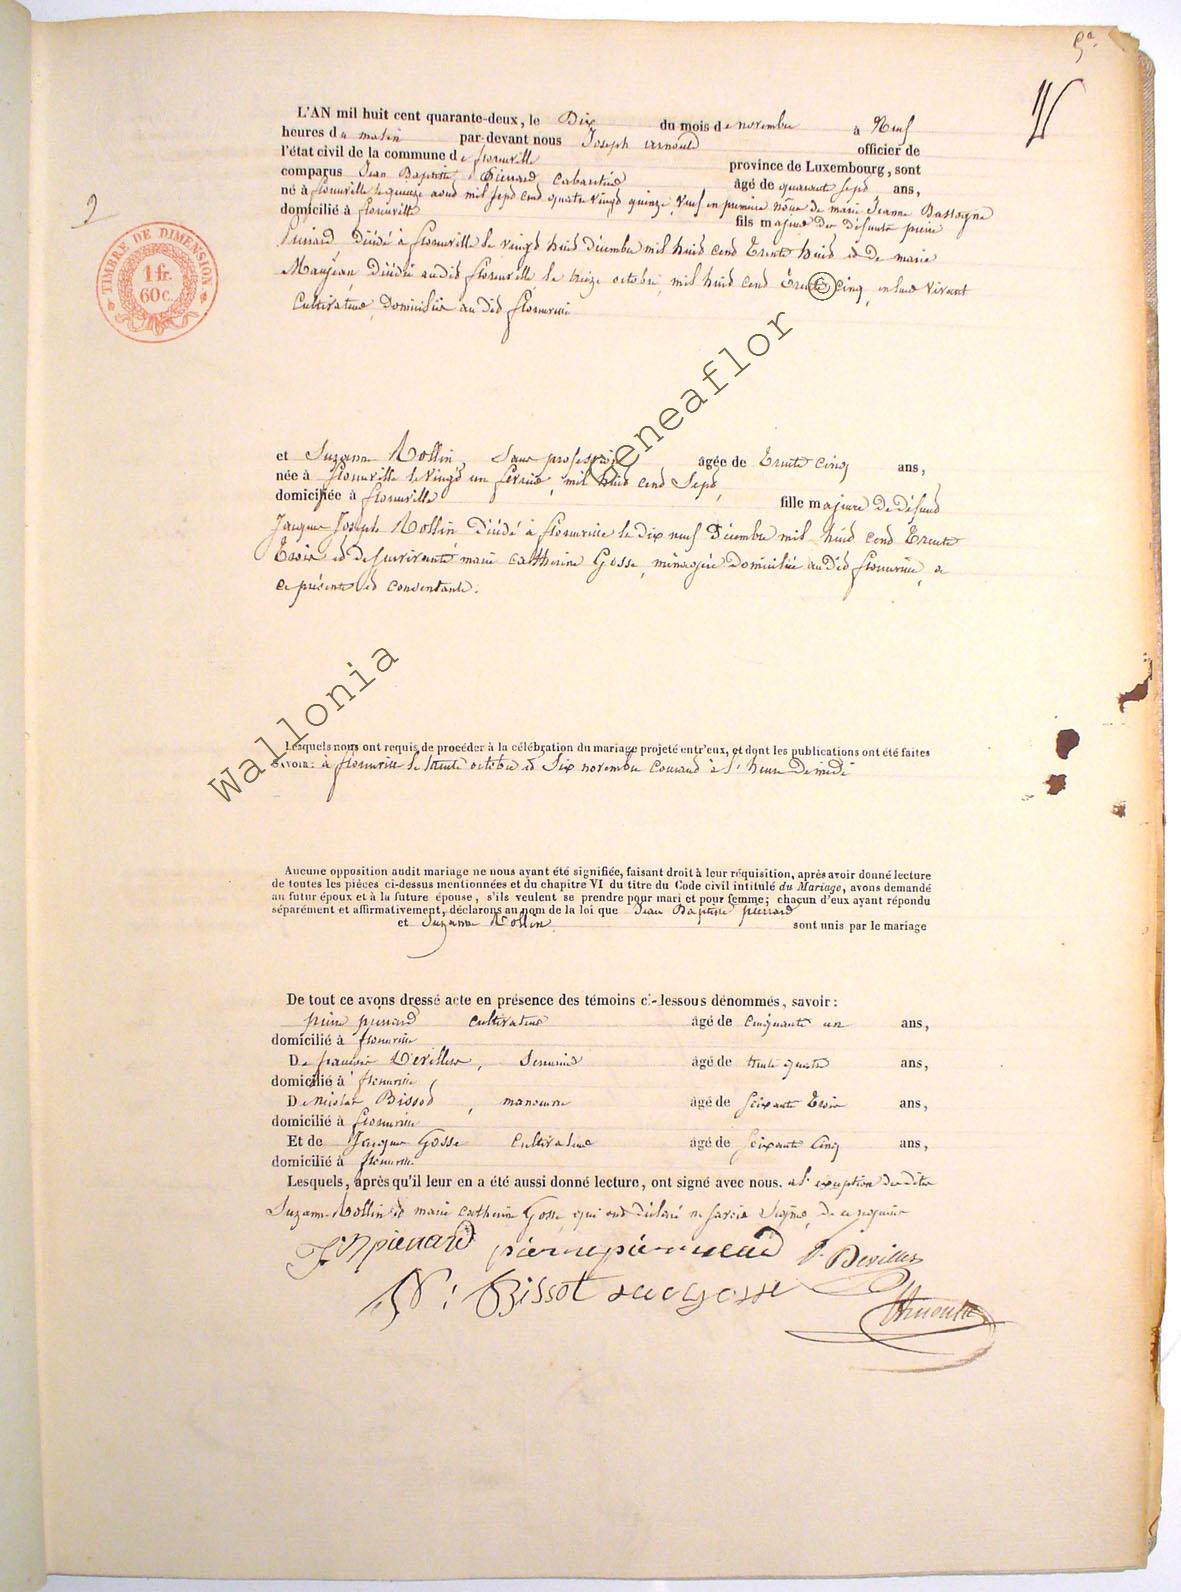 2
TIMBRE DE DIMENSION
1 fr.
60 c.
L'AN mil huit cent quarante-deux, le Dix du mois de novembre à Neuf
heures du matin par-devant nous Joseph Arnould officier de
l'état civil de la commune de florenville province de Luxembourg, sont
comparus Jean Baptiste Pierrard cabaretier âgé de quarante sept ans,
né à florenville le quinze aout mil sept cent quatre vingt quinze, veuf en première nôce de marie Jeanne Bassogne
domicilié à florenville fils majeur des défunts pierre
Pierrard décédé à florenville le vingt huit décembre mil huit cent trente huit et de marie
Maujean, décédée audit florenville, le treize octobre mil huit cent trente cinq, en leur vivant
Cultivateurs, domiciliés au dit florenville
et Suzanne Rollin, sans profession âgée de trente cinq ans,
née à florenville le vingt un février, mil huit cent sept,
domiciliée à florenville fille majeure de défunt
Jacques Joseph Rollin décédé à florenville le dix neuf décembre mil huit cent trente
trois et de survivante marie catherine Gosse, ménagère domiciliée au dit florenville, a
ce présente et consentante.
Lesquels nous ont requis de procéder à la célébration du mariage projeté entr'eux, et dont les publications ont été faites
savoir: à florenville le trente octobre et six novembre courant à l'heure de midi
Aucune opposition audit mariage ne nous ayant été signifiée, faisant droit à leur réquisition, après avoir donné lecture
de toutes les pièces ci-dessus mentionnées et du chapitre VI du titre du Code civil intitulé du Mariage, avons demandé
au futur époux et à la future épouse, s'ils veulent se prendre pour mari et pour femme; chacun d'eux ayant répondu
séparément et affirmativement, déclarons au nom de la loi que Jean Baptiste pierrard
et Suzanne Rollin sont unis par le mariage
De tout ce avons dressé acte en présence des témoins ci-dessous dénommés, savoir:
pierre pierrard cultivateur âgé de cinquante un ans,
domicilié à florenville
De françois Deviller, âgé de trente quatre ans,
domicilié à florenville
De Nicolas Bissot, manoeuvre âgé de soixante trois ans,
domicilié à florenville
Et de Jacques Gosse cultivateur âgé de soixante cinq ans,
domicilié à florenville
Lesquels, après qu'il leur en a été aussi donné lecture, ont signé avec nous. a l'exception desdites
Suzanne Rollin et marie catherine Gosse, qui ont déclaré ne savoir signer, de ce requises
J B pierrard pierre pierrard f. Deviller
N: Bissot Jacq Gosse
Arnould
Wallonia Geneaflor ©